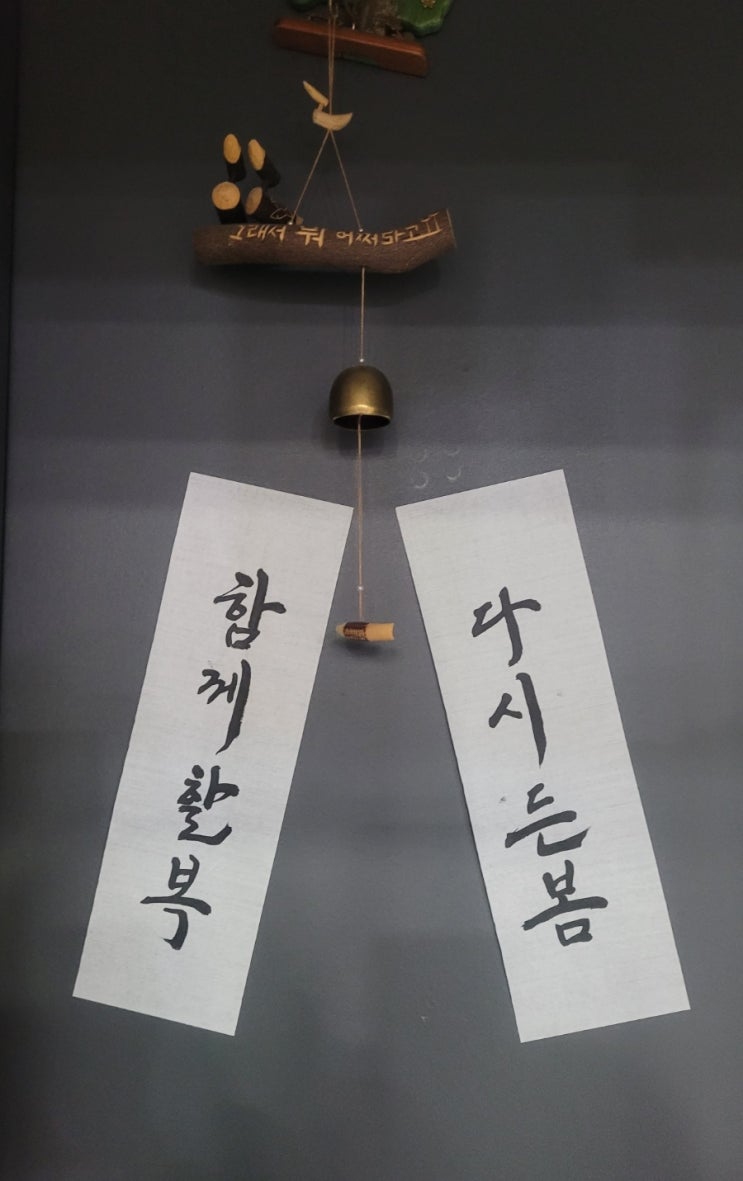 그래서 뭐 어쩌라고!!
다시든봄
함께할복